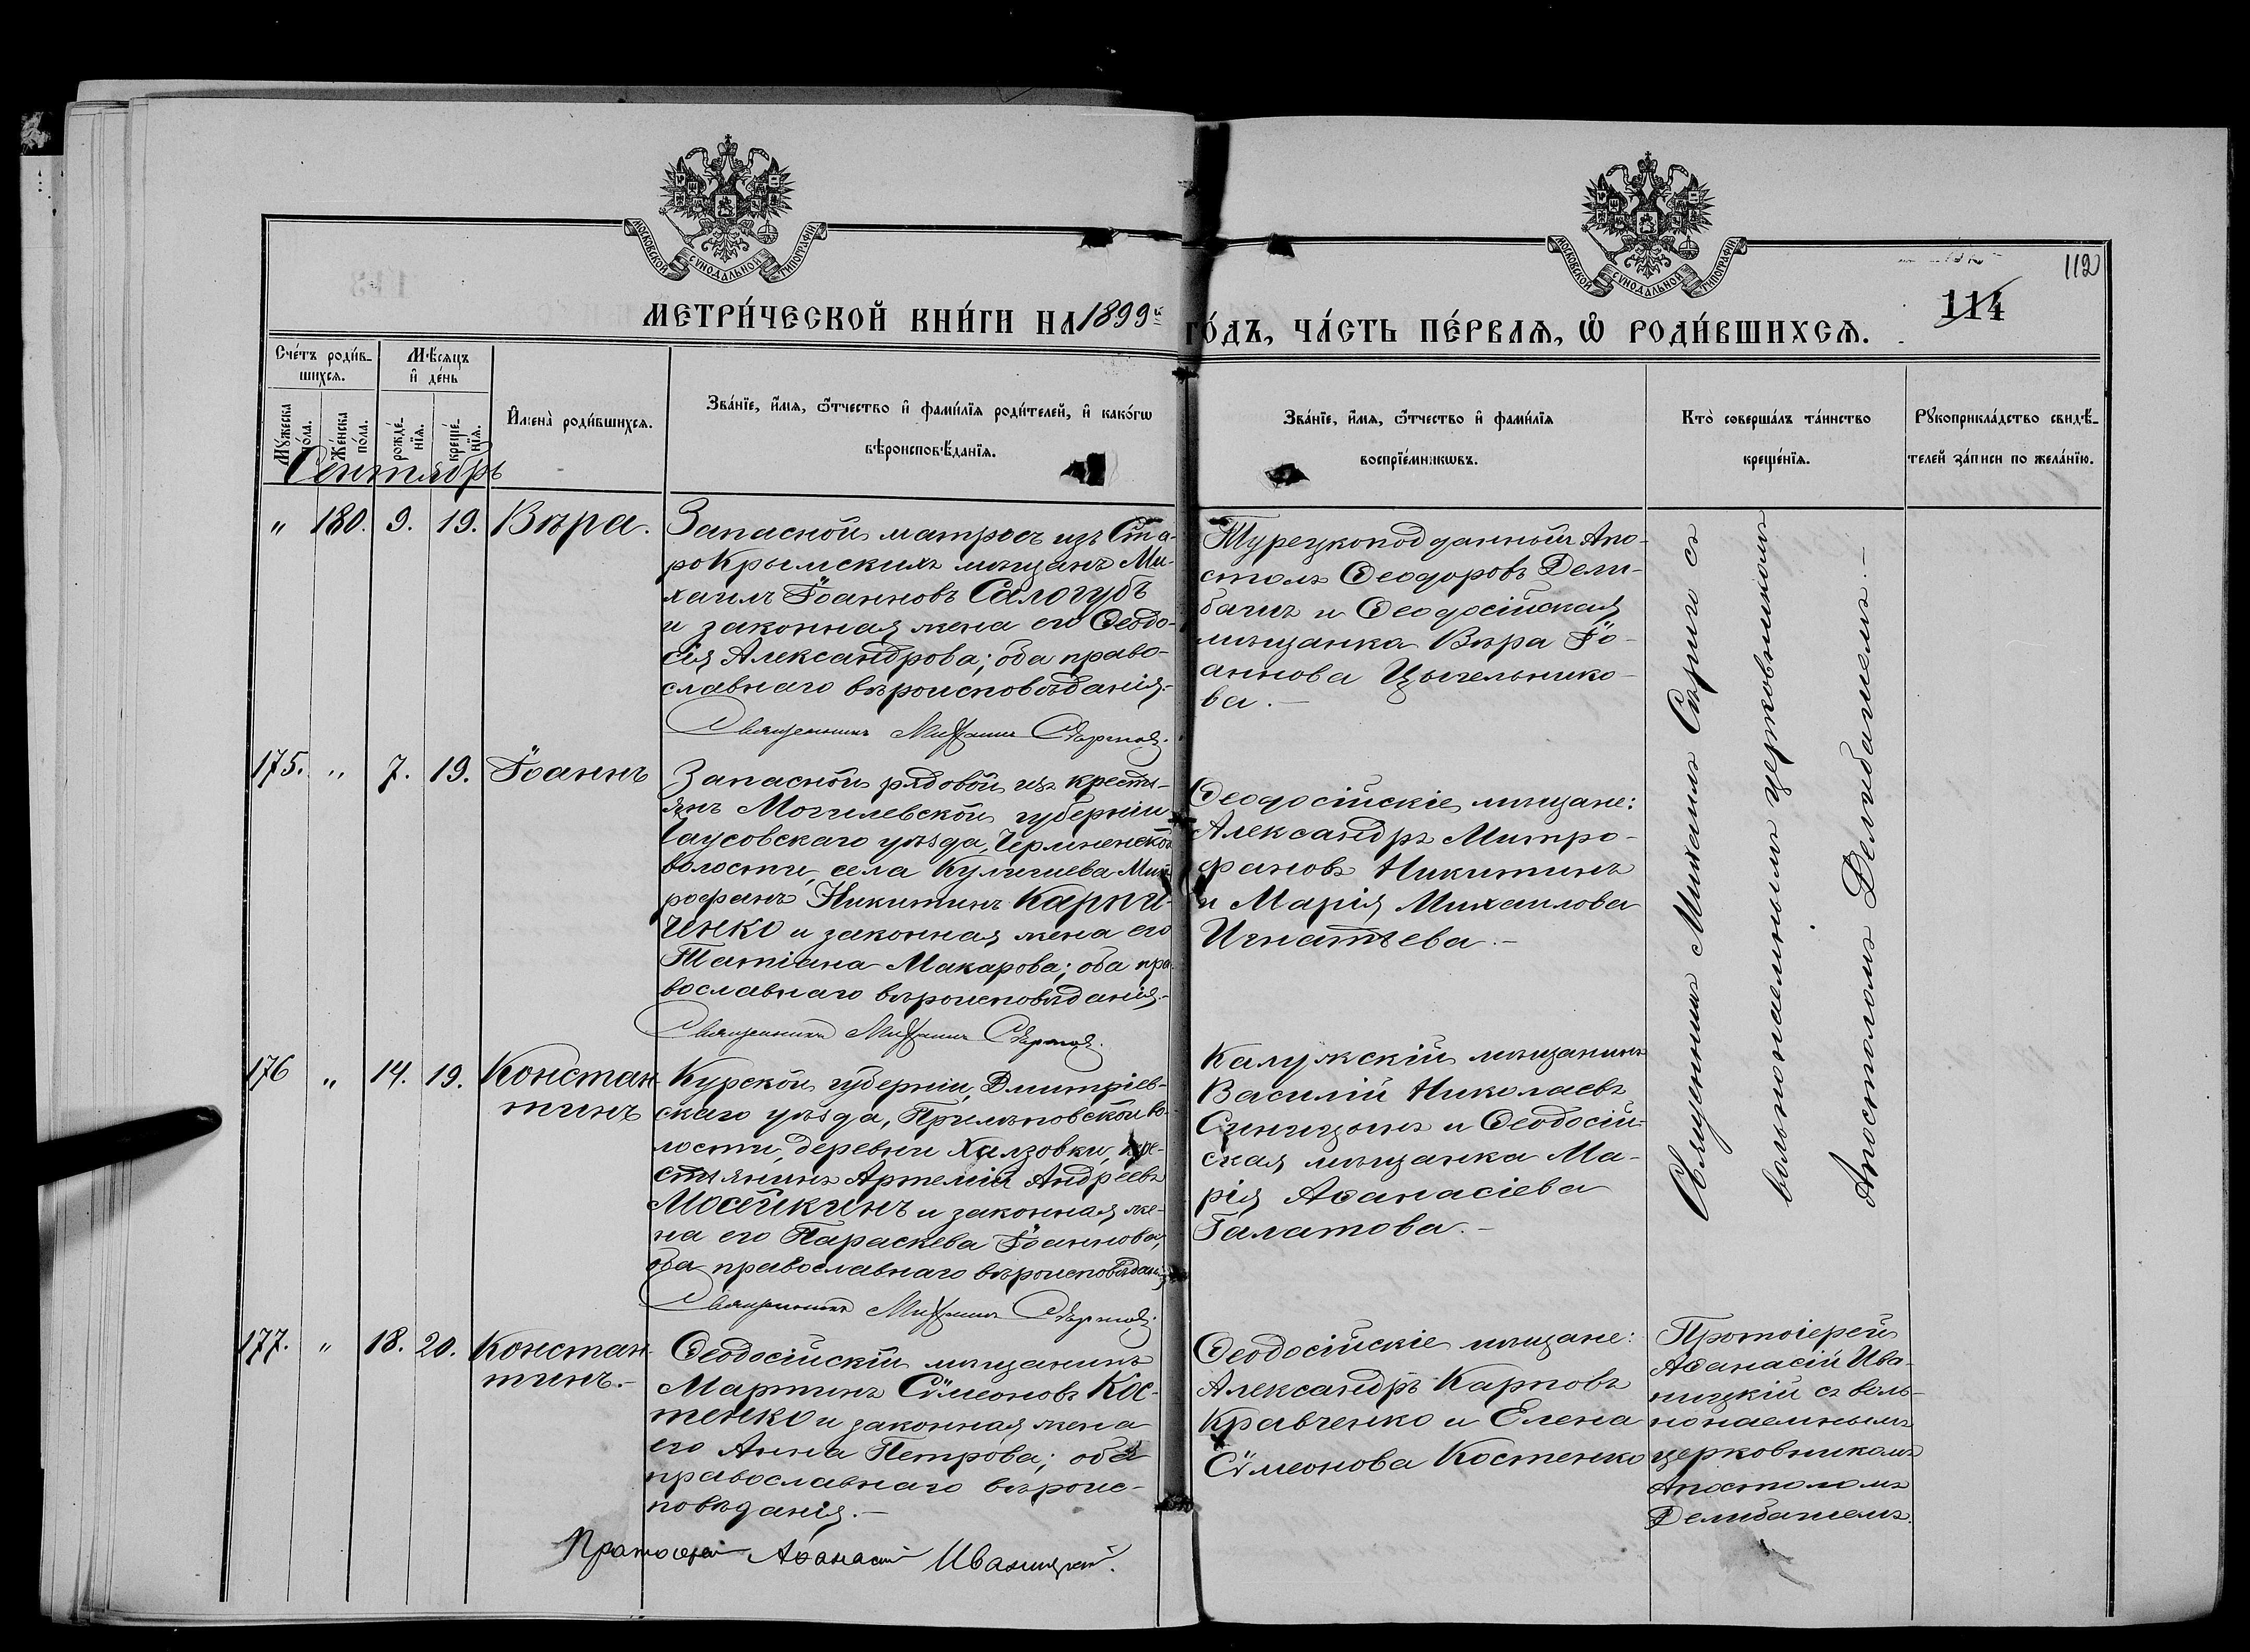 МОСКОВСКОЙ СУНОДАЛЬНОЙ ТИПОГРАФІИ
МОСКОВСКОЙ СУНОДАЛЬНОЙ ТИПОГРАФІИ
112
114
МЕТРИ́ЧЕСКОЙ КНИ́ГИ НА 1899й ГО́ДЪ, ЧА́СТЬ ПЕ́РВАѦ, Ѡ҆ РОДИ́ВШИХСѦ.
Сче́тъ роди́в-
шихсѧ.
Мꙋ́жеска
по́ла.
Же́нска
по́ла.
Мѣ́сѧцъ
и҆ де́нь
рожде́-
нїѧ.
креще́-
нїѧ.
И҆мена̀ роди́вшихсѧ.
Зва́нїе, и҆́мѧ, ѻ҆́тчество и҆ фами́лїѧ роди́телей, и҆ како́гѡ
вѣроисповѣ́данїѧ.
Зва́нїе, и҆́мѧ, ѻ҆́тчество и҆ фами́лїѧ
воспрїе́мникѡвъ.
Кто̀ соверша́лъ та́инство
креще́нїѧ.
Рꙋкоприкла́дство свидѣ́-
телей за́писи по жела́нїю.
Сентябрь
" 180. 9. 19. Вѣра.
Запасной матросъ изъ Ста-
роКрымскихъ мѣщанъ Ми-
хаилъ Іоанновъ Салогубъ
и законная жена его Ѳеодо-
сія Александрова; оба право-
славнаго вѣроисповѣданія.-
Священникъ Михаилъ Сѣрговъ.
Турецкоподданный Апо-
столъ Ѳеодоровъ Дели-
башъ и Ѳеодосійская
мѣщанка Вѣра Іо-
аннова Цыгельнико-
ва.-
175. " 7. 19. Іоаннъ
Запасной рядовой изъ кресть-
янъ Могилевской губерніи
Чаусовскаго уѣзда, Черлиненской
волости, села Кулигиева Мит-
рофанъ Никитинъ Карпи-
ченко и законная жена его
Татіана Макарова; оба пра-
вославнаго вѣроисповѣданія.-
Священникъ Михаилъ
Ѳеодосійскіе мѣщане:
Александръ Митро-
фановъ Никитинъ
и Марія Михаилова
Игнатьева.-
176 " 14. 19. Констан-
тинъ
Курской губерніи, Дмитріев-
скаго уѣзда, во-
лости, деревни Халзовки, кре-
стьянинъ Артемій Андреевъ
Мосейкинъ и законная же-
на его Параскева Іоаннова;
оба православнаго вѣроисповѣданія
Священникъ Михаилъ
Калужскій мѣщанинъ
Василій Николаевъ
Синицынъ и Ѳеодосій-
ская мѣщанка Ма-
рія Аѳанасіева
Галатова.-
Священникъ Михаилъ съ
вольнонаемнымъ церковникомъ
Апостоломъ Делибашемъ.-
177. " 18. 20. Констан-
тинъ.-
Ѳеодосійскій мѣщанинъ
Мартинъ Сѵмеоновъ Кос-
тенко и законная жена
его Анна Петрова; оба
православнаго вѣроис-
повѣданія.-
Протоіерей Аѳанасій Иваницкій.
Ѳеодосійскіе мѣщане:
Александръ Карповъ
Кравченко и Елена
Сѵмеонова Костенко
Протоіерей
Аѳанасій Ива-
ницкій съ воль-
нонаемнымъ
церковникомъ
Апостоломъ
Делибашемъ.